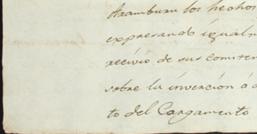 Aramburu los hechos
expresando igualm
recivio de sus comiten
sobre la invencion ó a
to del Cargamento